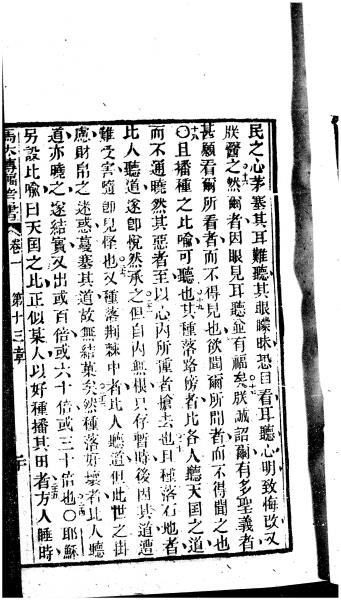 民之心茅塞其耳難聽其眼矇昧恐目看耳聽心明致悔改又
朕醫之然爾者因眼見耳聽並有福矣朕誠詔爾有多聖義者
甚願看爾所看者而不得見也欲聞爾所聞者而不得聞之也
○且播種之比喻可聽也其種落路傍者比各人聽天国之道
而不通曉然其惡者至以心內所種者搶去也且種落石地者
比人聽道遂即悅然承之但自內無根只存暫時後因其道遭
難受害隨即見怪也又種落荆棘中者比人聽道但此世之掛
慮財帛之迷惑蔓塞其道故無結菓矣然種落好壤者比人聽
道亦曉之遂結實又出或百倍或六十倍或三十倍也○耶穌
另設比喻曰天国之比正似某人以好種播其田者方人睡時
馬太傳福音書 卷一 第十三章